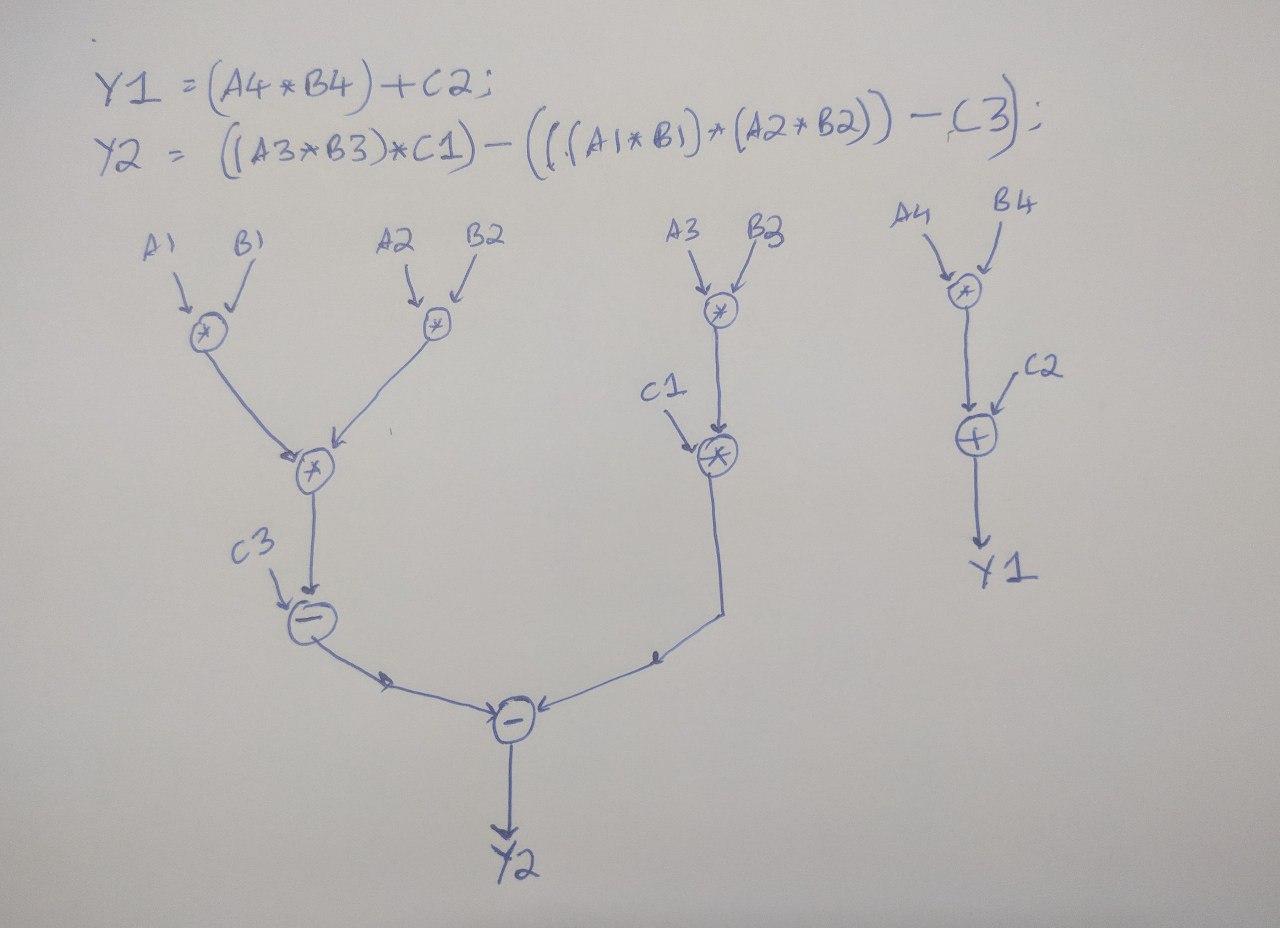 Y1 = (A4 * B4) + C2;
Y2 = ((A3*B3)*C1) - (((A1*B1)*(A2*B2)) - C3);
A1 B1 A2 B2 A3 B3 A4 B4
* * * *
C1 C2
* * +
C3
Y1
-
-
Y2